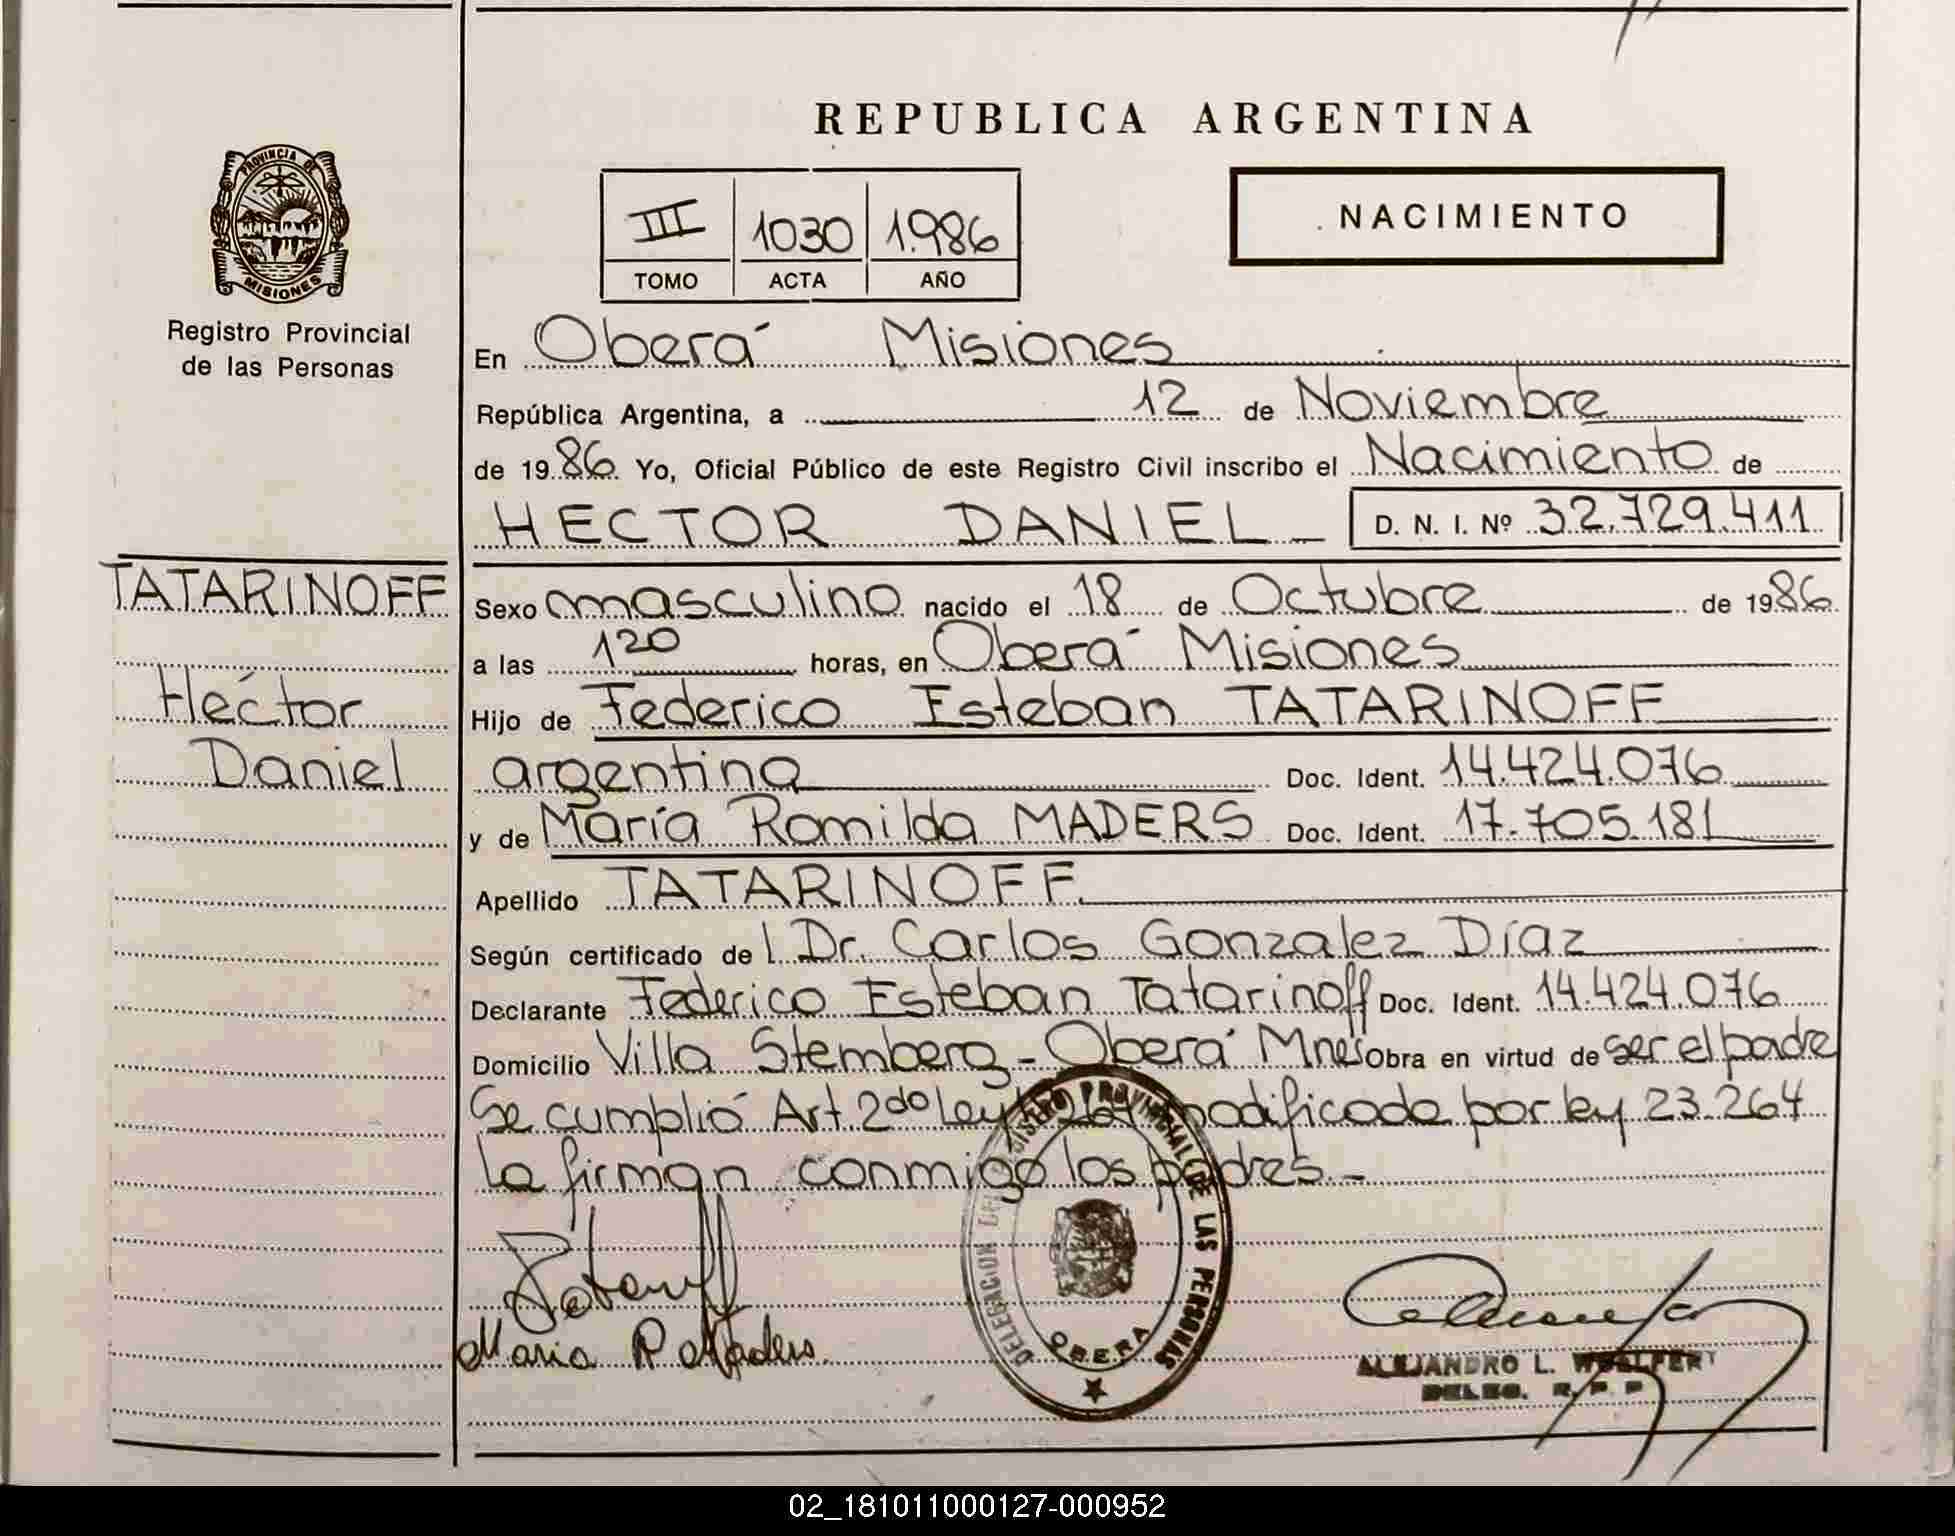 REPUBLICA ARGENTINA
PROVINCIA DE
MISIONES
Registro Provincial
de las Personas
III 1030 1.986
TOMO ACTA AÑO
NACIMIENTO
En Oberá Misiones
República Argentina, a 12 de Noviembre
de 1986 Yo, Oficial Público de este Registro Civil inscribo el Nacimiento de
HECTOR DANIEL D. N. I. Nº 32.729.411
TATARINOFF
Héctor
Daniel
Sexo masculino nacido el 18 de Octubre de 1986
a las 1²⁰ horas, en Oberá Misiones
Hijo de Federico Esteban TATARINOFF
argentina Doc. Ident. 14.424.076
y de María Romilda MADERS Doc. Ident. 17.705.181
Apellido TATARINOFF
Según certificado de l Dr. Carlos Gonzalez Díaz
Declarante Federico Esteban Tatarinoff Doc. Ident. 14.424.076
Domicilio Villa Stemberg - Oberá Mnes Obra en virtud de ser el padre
Se cumplió Art. 2do Ley modificada por ley 23.264
La firman conmigo los padres.-
DELEGACION DEL REGISTRO PROVINCIAL DE LAS PERSONAS
OBERA
Maria R Maders.
ALEJANDRO L.
DELEG. R. P. P
02_181011000127-000952